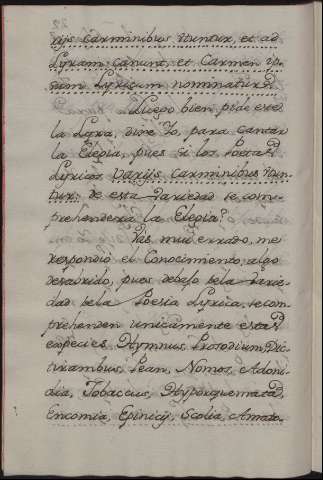 rijs Carminibus utuntur, et ad
Lyram Canunt, et Carmen ip-
sum Lyricum nominatur.
Luego bien pide este
la Lyra, dire Yo, para cantar
la Elegia, pues si los Poetas
Lyricos Varijs carminibus utun-
tur: de esta Variedad se com-
prehenderà la Elegia?
Vas mui errado, me
respondiò el Conocimiento, algo
desabrido, pues debaxo de la Varie-
dad de la Poesia Lyrica, se com-
prehenden unicamente estas
especies. Hymnus, Prosodium, Dic-
tirambus, Pean, Nomos, Adoni-
dia, Jobaccus, Hyporquemata,
Encomia, Epinicij, Scolia, Amato-